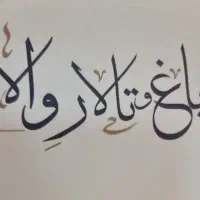 باغ و تالار والا